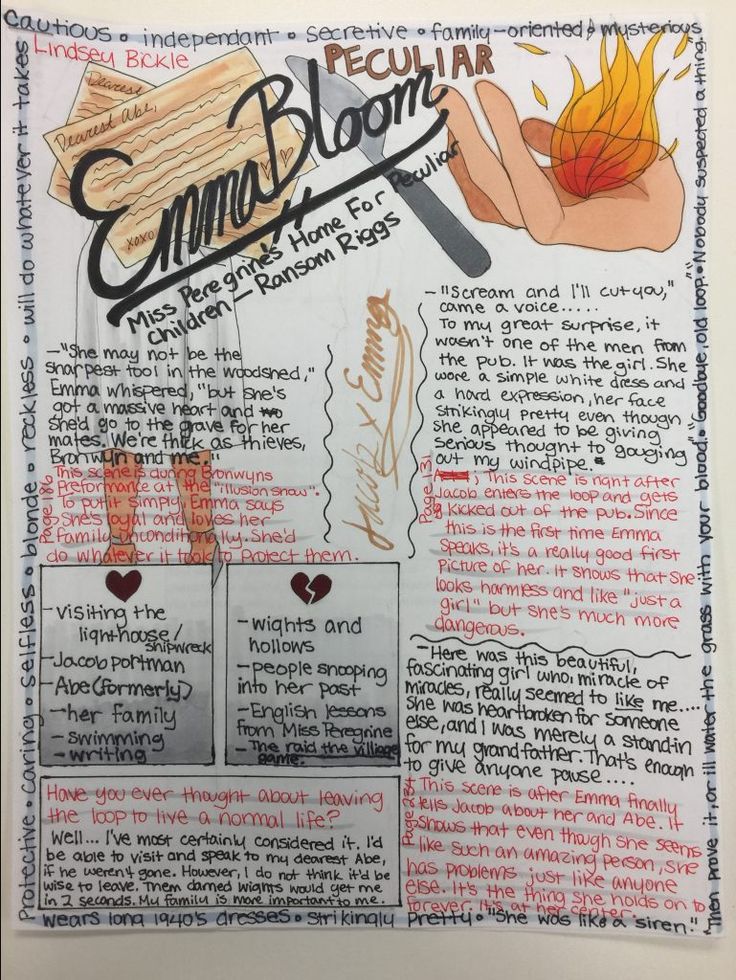 cautious • independant • secretive • family-oriented • mysterious
Lindsey Bickle
PECULIAR
Dearest
Dearest Abe,
xoxo
Emma Bloom
Miss Peregrine's Home For Peculiar
Children - Ransom Riggs
Jacob x Emma
- "She may not be the
sharpest tool in the woodshed,"
Emma whispered, "but she's
got a massive heart and
she'd go to the grave for her
mates. We're thick as thieves,
Bronwyn and me."
Page 186
This scene is during Bronwyns
Preformance at the "illusion show".
To put it simply, Emma says
She's loyal and loves her
family unconditionally. She'd
do whatever it took to protect them.
- "Scream and I'll cut you,"
came a voice.....
To my great surprise, it
wasn't one of the men from
the pub. It was the girl. She
wore a simple white dress and
a hard expression, her face
strikingly pretty even though
she appeared to be giving
serious thought to gouging
out my windpipe.
Page 131
This scene is right after
Jacob enters the loop and gets
kicked out of the pub. Since
this is the first time Emma
speaks, it's a really good first
picture of her. It shows that she
looks harmless and like "just a
girl" but she's much more
dangerous.
- visiting the
lighthouse/
shipwreck
- Jacob portman
- Abe (formerly)
- her family
- swimming
- writing
- wights and
hollows
- people snooping
into her past
- English lessons
from Miss Peregrine
- The raid the village
game.
- Here was this beautiful,
fascinating girl who, miracle of
miracles, really seemed to like me....
She was heartbroken for someone
else, and I was merely a stand-in
for my grandfather. That's enough
to give anyone pause....
Page 234
This scene is after Emma finally
tells Jacob about her and Abe. It
shows that even though she seems
like such an amazing person, she
has problems just like anyone
else. It's the thing she holds on to
forever. It's at her center.
Have you ever thought about leaving
the loop to live a normal life?
Well... I've most certainly considered it. I'd
be able to visit and speak to my dearest Abe,
if he weren't gone. However, I do not think it'd be
wise to leave. Them darned wights would get me
in 2 seconds. My family is more important to me.
Protective • caring • selfless • blonde • reckless • will do whatever it takes
wears long 1940's dresses • strikingly pretty • "She was like a siren."
"Then prove it, or ill water the grass with your blood." • "Goodbye, old loop." • Nobody suspected a thing.